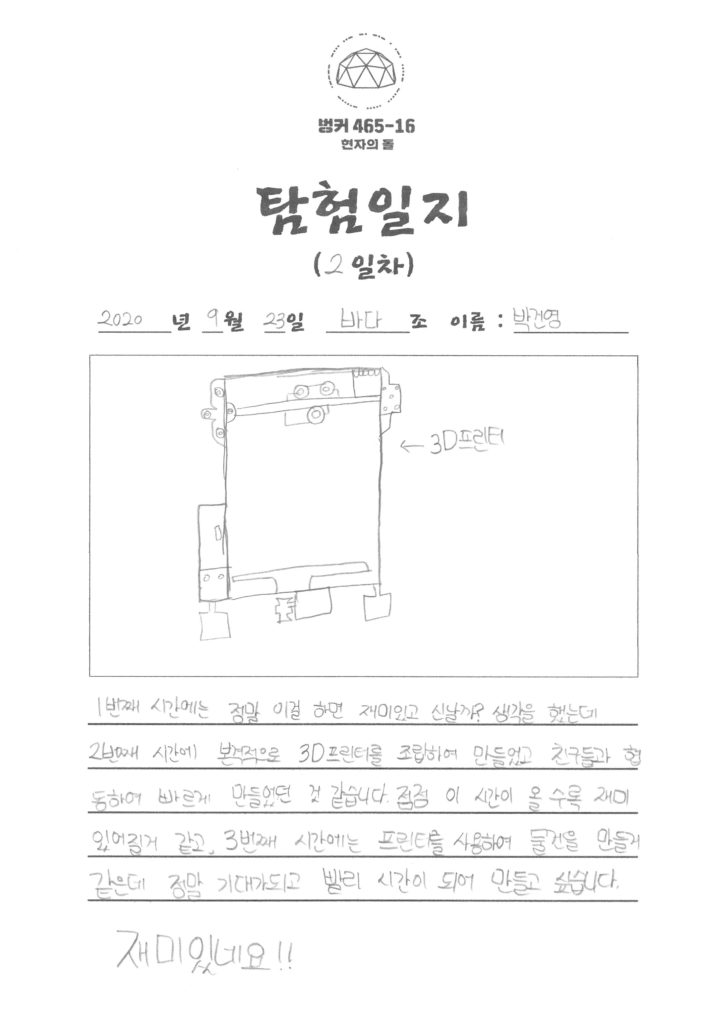 벙커 465-16
현자의 돌
탐험일지
(2일차)
2020 년 9월 23일 바다 조 이름 : 박건영
← 3D프린터
1번째 시간에는 정말 이걸 하면 재미있고 신날까? 생각을 했는데
2번째 시간에 본격적으로 3D프린터를 조립하여 만들었고 친구들과 협
동하여 빠르게 만들었던 것 같습니다. 점점 이 시간이 올 수록 재미
있어질거 같고, 3번째 시간에는 프린터를 사용하여 물건을 만들거
같은데 정말 기대가되고 빨리 시간이 되어 만들고 싶습니다.
재미있네요!!